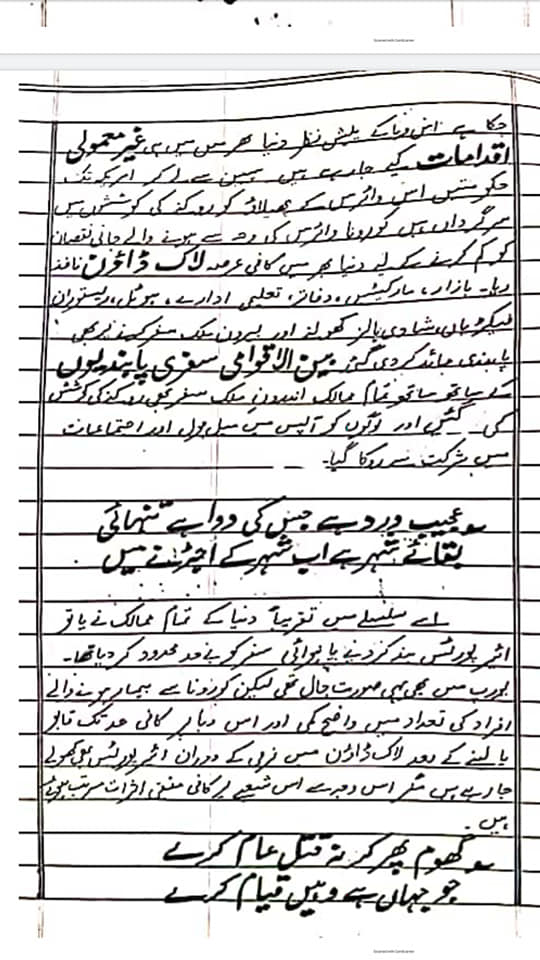 چکا ہے۔ اس وبا کے پیش نظر دنیا بھر میں ہی غیر معمولی
اقدامات کیے جا رہے ہیں۔ چین سے لے کر امریکہ تک
حکومتیں اس وائرس کے پھیلاؤ کو روکنے کی کوششوں میں
سرگرداں ہیں کورونا وائرس کی وجہ سے ہونے والے جانی نقصان
کو کم کرنے کے لیے دنیا بھر میں کافی عرصہ لاک ڈاؤن نافذ
رہا۔ بازار، مارکیٹیں، دفاتر، تعلیمی ادارے، ہوٹل، ریستوران
فیکٹریاں، شادی ہالز کھولنے اور بیرون ملک سفر کرنے پر بھی
پابندی عائد کر دی گئی۔ بین الاقوامی سفری پابندیوں
کے ساتھ ساتھ تمام ممالک اندرون ملک سفر بھی روکنے کی کوشش
کی گئی اور لوگوں کو آپس میں میل جول اور اجتماعات
میں شرکت سے روکا گیا۔
عجیب درد ہے جس کی دوا ہے تنہائی
بقائے شہر ہے اب شہر کے اجڑنے میں
اے سلسلے میں تقریباً دنیا کے تمام ممالک نے یا تو
ائیر پورٹس بند کر دیے یا ہوائی سفر کو بے حد محدود کر دیا تھا۔
یورپ میں بھی یہی صورت حال تھی لیکن کورونا سے بیمار ہونے والے
افراد کی تعداد میں واضح کمی اور اس وبا پر کافی حد تک قابو
پا لینے کے بعد لاک ڈاؤن میں نرمی کے دوران ائیر پورٹس بھی کھولے
جا رہے ہیں مگر اس وجہ سے اس شعبے پر کافی منفی اثرات مرتب ہوئے
ہیں۔
گھوم پھر کر نہ قتل عام کرے
جو جہاں ہے وہیں قیام کرے